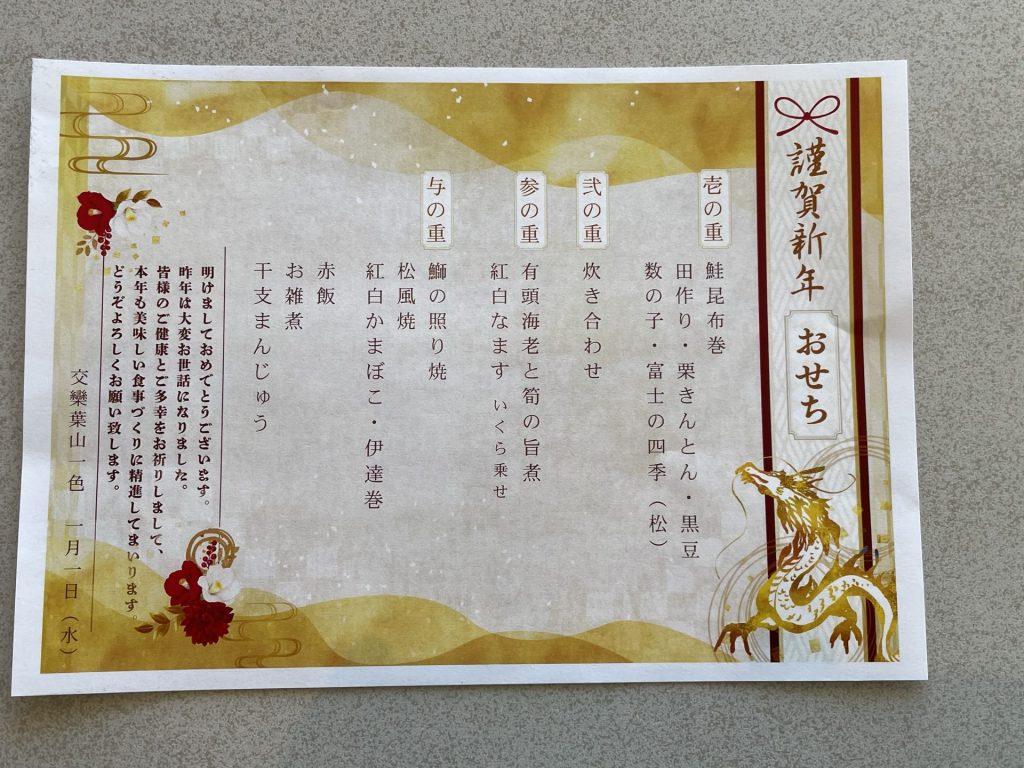 謹賀新年 おせち
壱の重 鮭昆布巻
田作り・栗きんとん・黒豆
数の子・富士の四季（松）
弐の重 炊き合わせ
参の重 有頭海老と筍の旨煮
紅白なます いくら乗せ
与の重 鰤の照り焼
松風焼
紅白かまぼこ・伊達巻
赤飯
お雑煮
干支まんじゅう
明けましておめでとうございます。
昨年は大変お世話になりました。
皆様のご健康とご多幸をお祈りしまして、
本年も美味しい食事づくりに精進してまいります。
どうぞよろしくお願い致します。
交欒葉山一色 一月一日（水）